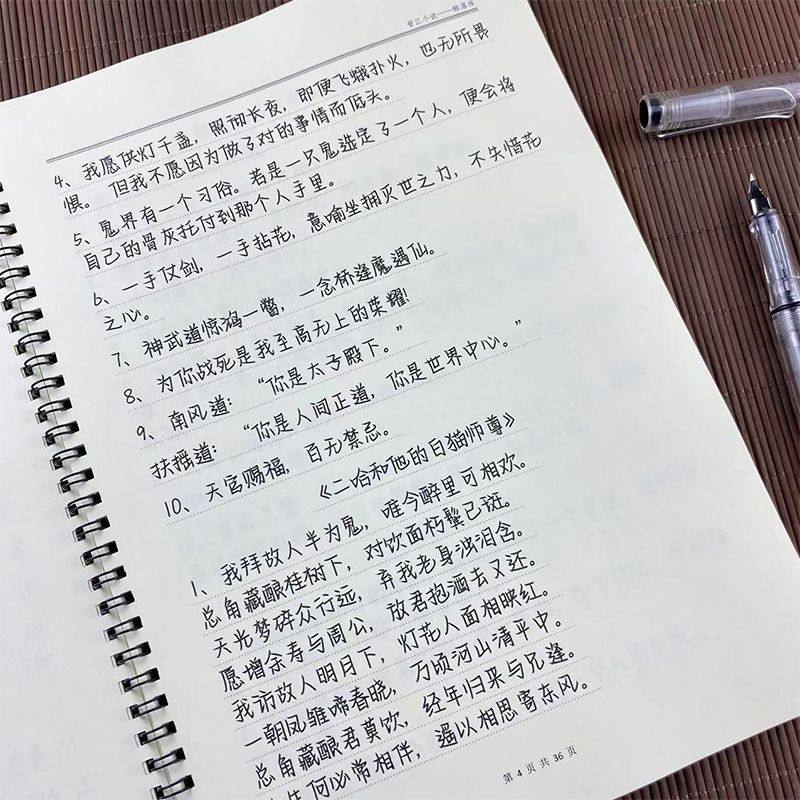 晋江小说——鲸落体
4、我愿供灯千盏，照彻长夜，即便飞蛾扑火，也无所畏
惧。但我不愿因为做了对的事情而低头。
5、鬼界有一个习俗。若是一只鬼选定了一个人，便会将
自己的骨灰托付到那个人手里。
6、一手仗剑，一手拈花，意喻坐拥灭世之力，不失惜花
之心。
7、神武道惊鸿一瞥，一念桥逢魔遇仙。
8、为你战死是我至高无上的荣耀!
9、南风道：“你是太子殿下。”
扶摇道：“你是人间正道，你是世界中心。”
10、天官赐福，百无禁忌。
《二哈和他的白猫师尊》
1、我拜故人半为鬼，唯今醉里可相欢。
总角藏酿桂树下，对饮面朽鬓已斑。
天光梦碎众行远，弃我老身浊泪含。
愿增余寿与周公，放君抱酒去又还。
我访故人明日下，灯花人面相映红。
一朝凤雏啼春晓，万顷河山清平中。
总角藏酿君莫饮，经年归来与兄逢。
何必常相伴，遥以相思寄东风。
第 4 页 共 36 页